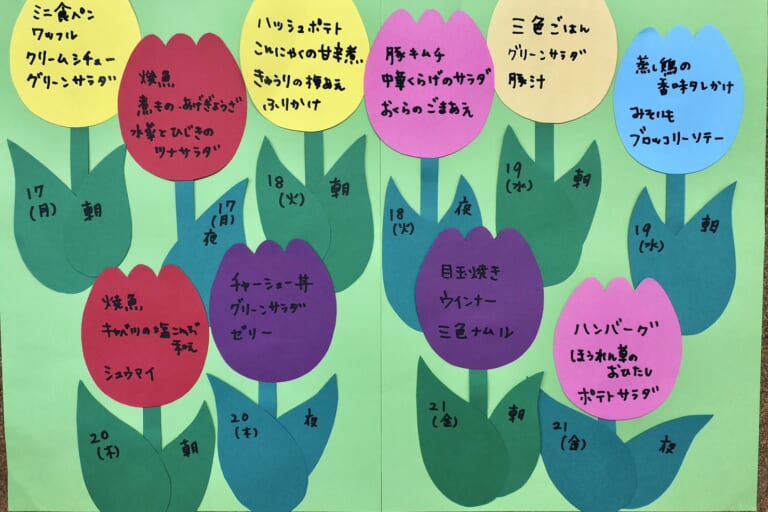 ミニ食パン
ワッフル
クリームシチュー
グリーンサラダ
17
(月)
朝
焼魚
煮もの・あげぎょうざ
水菜とひじきの
ツナサラダ
17
(月)
夜
ハッシュポテト
こんにゃくの甘辛煮
きゅうりの梅あえ
ふりかけ
18
(火)
朝
豚キムチ
中華くらげのサラダ
おくらのごまあえ
18
(火)
夜
三色ごはん
グリーンサラダ
豚汁
19
(水)
朝
蒸し鶏の
香味タレかけ
みそいも
ブロッコリーソテー
19
(水)
朝
焼魚
キャベツの塩こんぶ
和え
シュウマイ
20
(木)
朝
チャーシュー丼
グリーンサラダ
ゼリー
20
(木)
夜
目玉焼き
ウインナー
三色ナムル
21
(金)
朝
ハンバーグ
ほうれん草の
おひたし
ポテトサラダ
21
(金)
夜